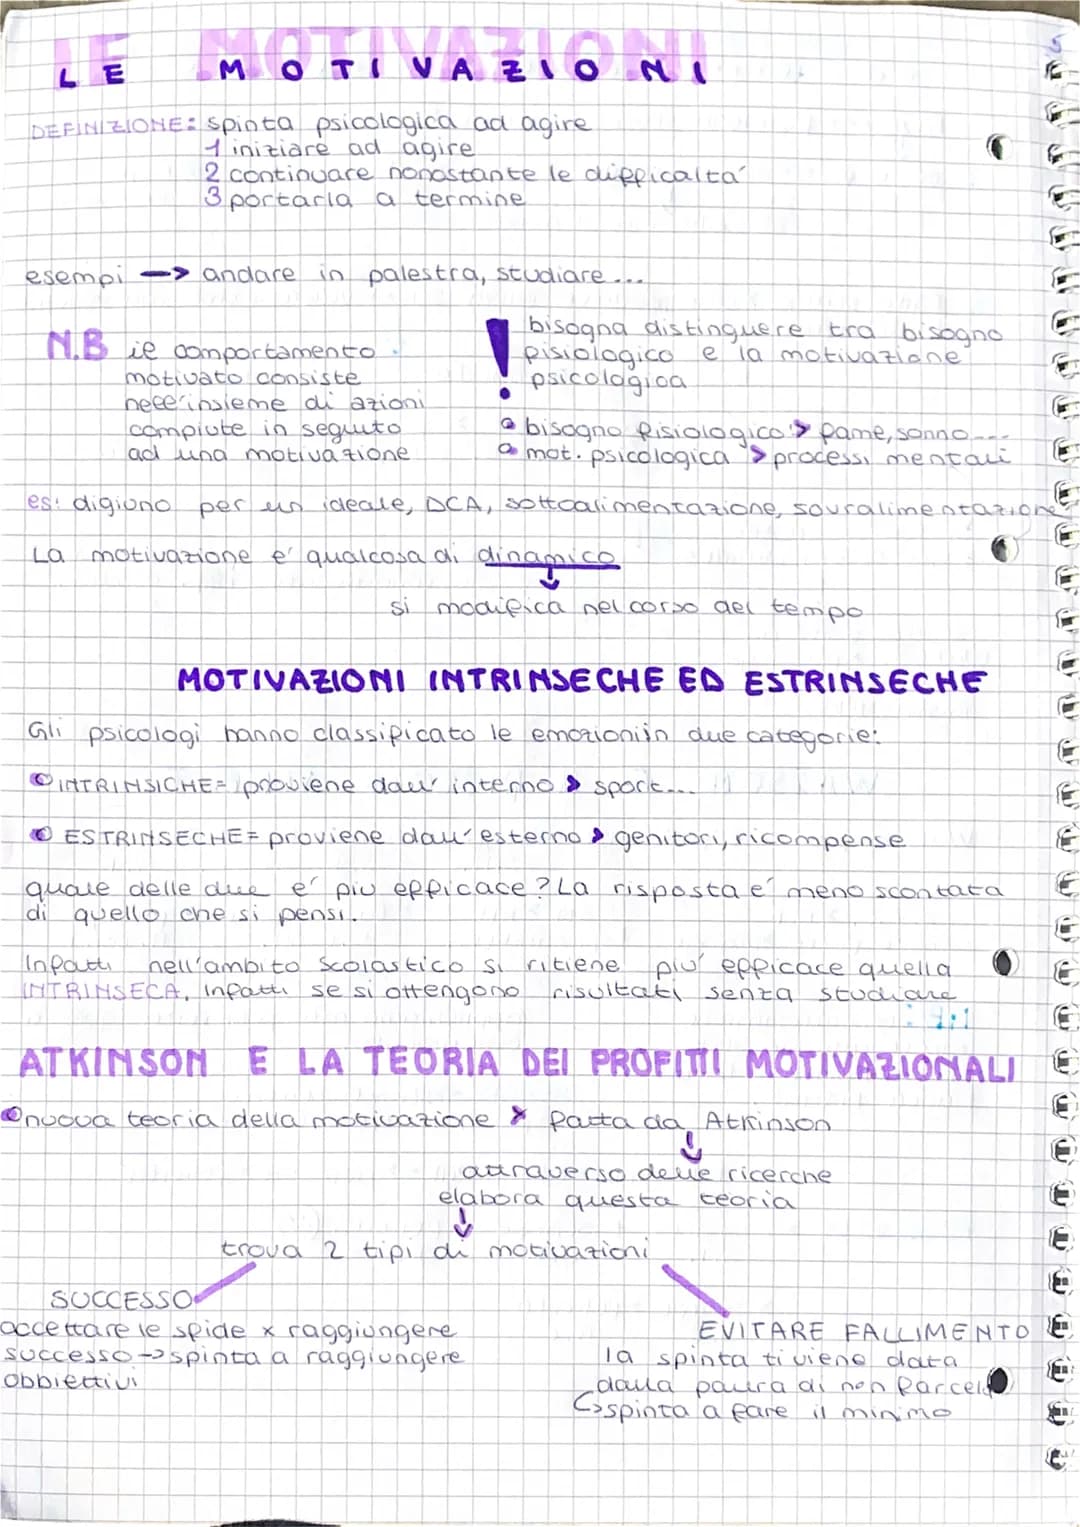 LE MOTIVAZIONI
LE MOTIVAZIONI
DEFINIZIONE: spinta psicologica ad agire
1 iniziare ad agire
2 continuare nonostante le difficaltà
3 portarla a termine
esempi -> andare in palestra, studiare...
N.B il comportamento
motivato consiste
nell'insieme di azioni
compiute in seguito
ad una motivazione
! bisogna distinguere tra bisogno
fisiologico e la motivazione
psicologica
bisogno fisiologico > fame, sonno...
mot. psicologica > processi mentali
es: digiuno per un ideale, DCA, sottoalimentazione, sovralimentazione
La motivazione e' qualcosa di dinamico
si modifica nel corso del tempo
MOTIVAZIONI INTRINSECHE ED ESTRINSECHE
Gli psicologi hanno classificato le emozioniin due categorie:
INTRINSICHE= proviene dall' interno > sport...
ESTRINSECHE= proviene dall'esterno > genitori, ricompense
quale delle due e' più efficace? La risposta e' meno scontata
di quello che si pensi.
Infatti nell'ambito scolastico si ritiene piu' efficace quella
INTRINSECA, infatti se si ottengono risultati senza studiare
ATKINSON E LA TEORIA DEI PROFITTI MOTIVAZIONALI
nuova teoria della motivazione > fatta da Atkinson
attraverso delle ricerche
elabora questa teoria
trova 2 tipi di motivazioni
SUCCESSO
accettare le sfide x raggiungere
successo -> spinta a raggiungere
obbiettivi
EVITARE FALLIMENTO
la spinta ti viene data
dalla paura di non farcela
spinta a fare il minimo